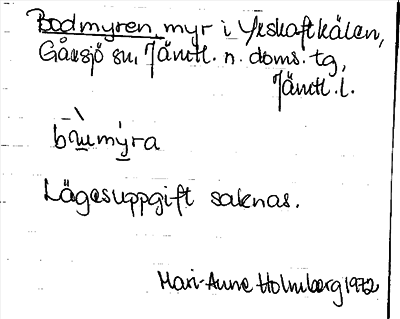 Bodmyren, myr i Yxskaftkälen,
Gåxsjö sn, Jämtl. n. doms. tg,
Jämtl. l.
myra
Lägesuppgift saknas.
Mari-Anne Holmberg 1972